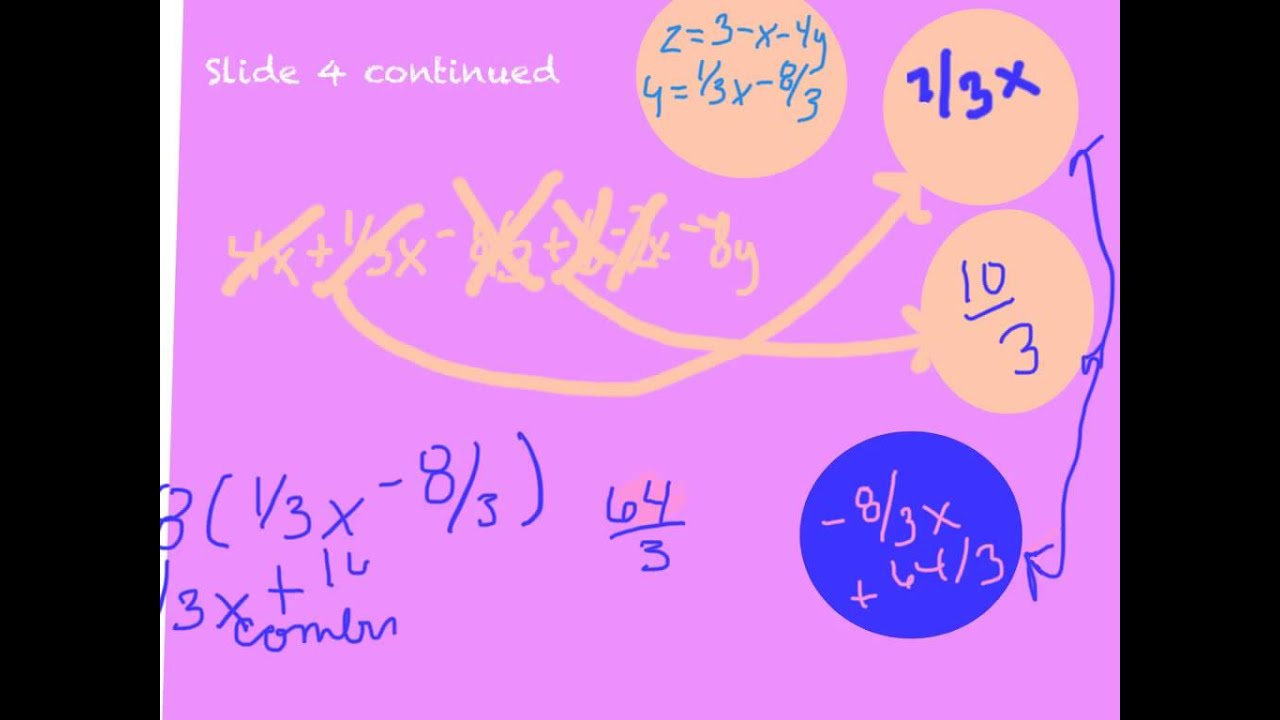 Slide 4 continued
z=3-x-4y
y=1/3x-8/3
7/3x
4x+1/3x-8/3+6-2x-8y
10
3
8(1/3x-8/3)
64
3
-8/3x
+64/3
/3x+16
combin